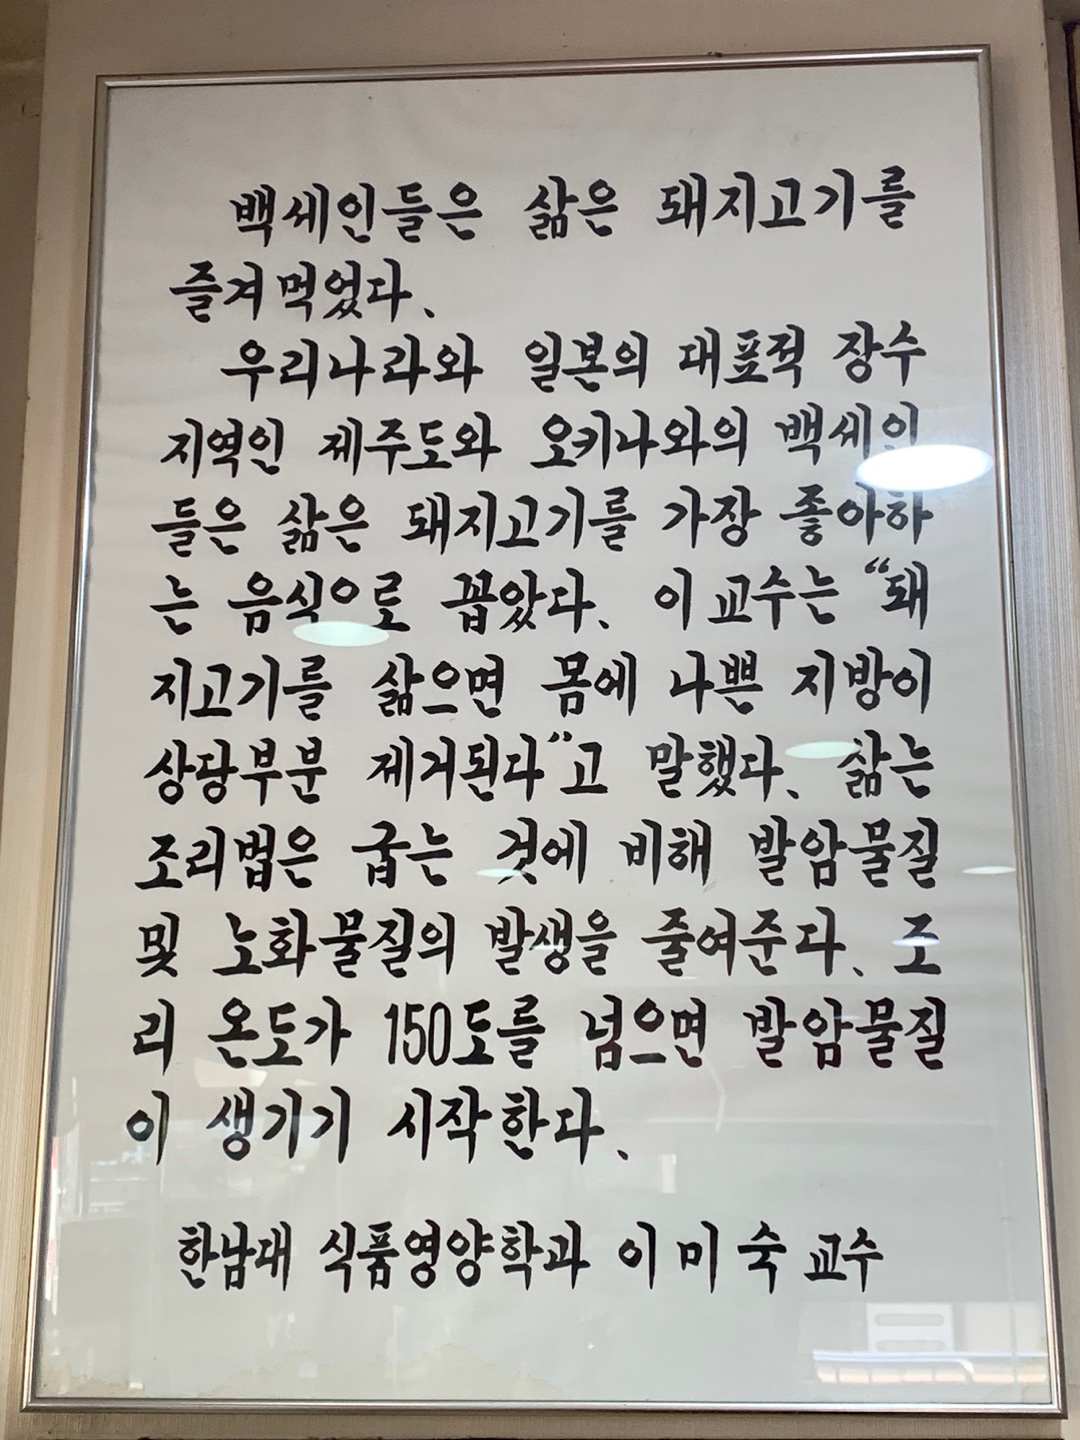 백세인들은 삶은 돼지고기를
즐겨먹었다.
우리나라와 일본의 대표적 장수
지역인 제주도와 오키나와의 백세인
들은 삶은 돼지고기를 가장 좋아하
는 음식으로 꼽았다. 이 교수는 "돼
지고기를 삶으면 몸에 나쁜 지방이
상당부분 제거된다"고 말했다. 삶는
조리법은 굽는 것에 비해 발암물질
및 노화물질의 발생을 줄여준다. 조
리 온도가 150도를 넘으면 발암물질
이 생기기 시작한다.
한남대 식품영양학과 이미숙 교수